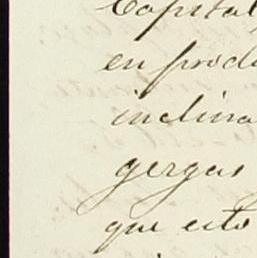 Capital
en prod
inclina
gergas
que esto